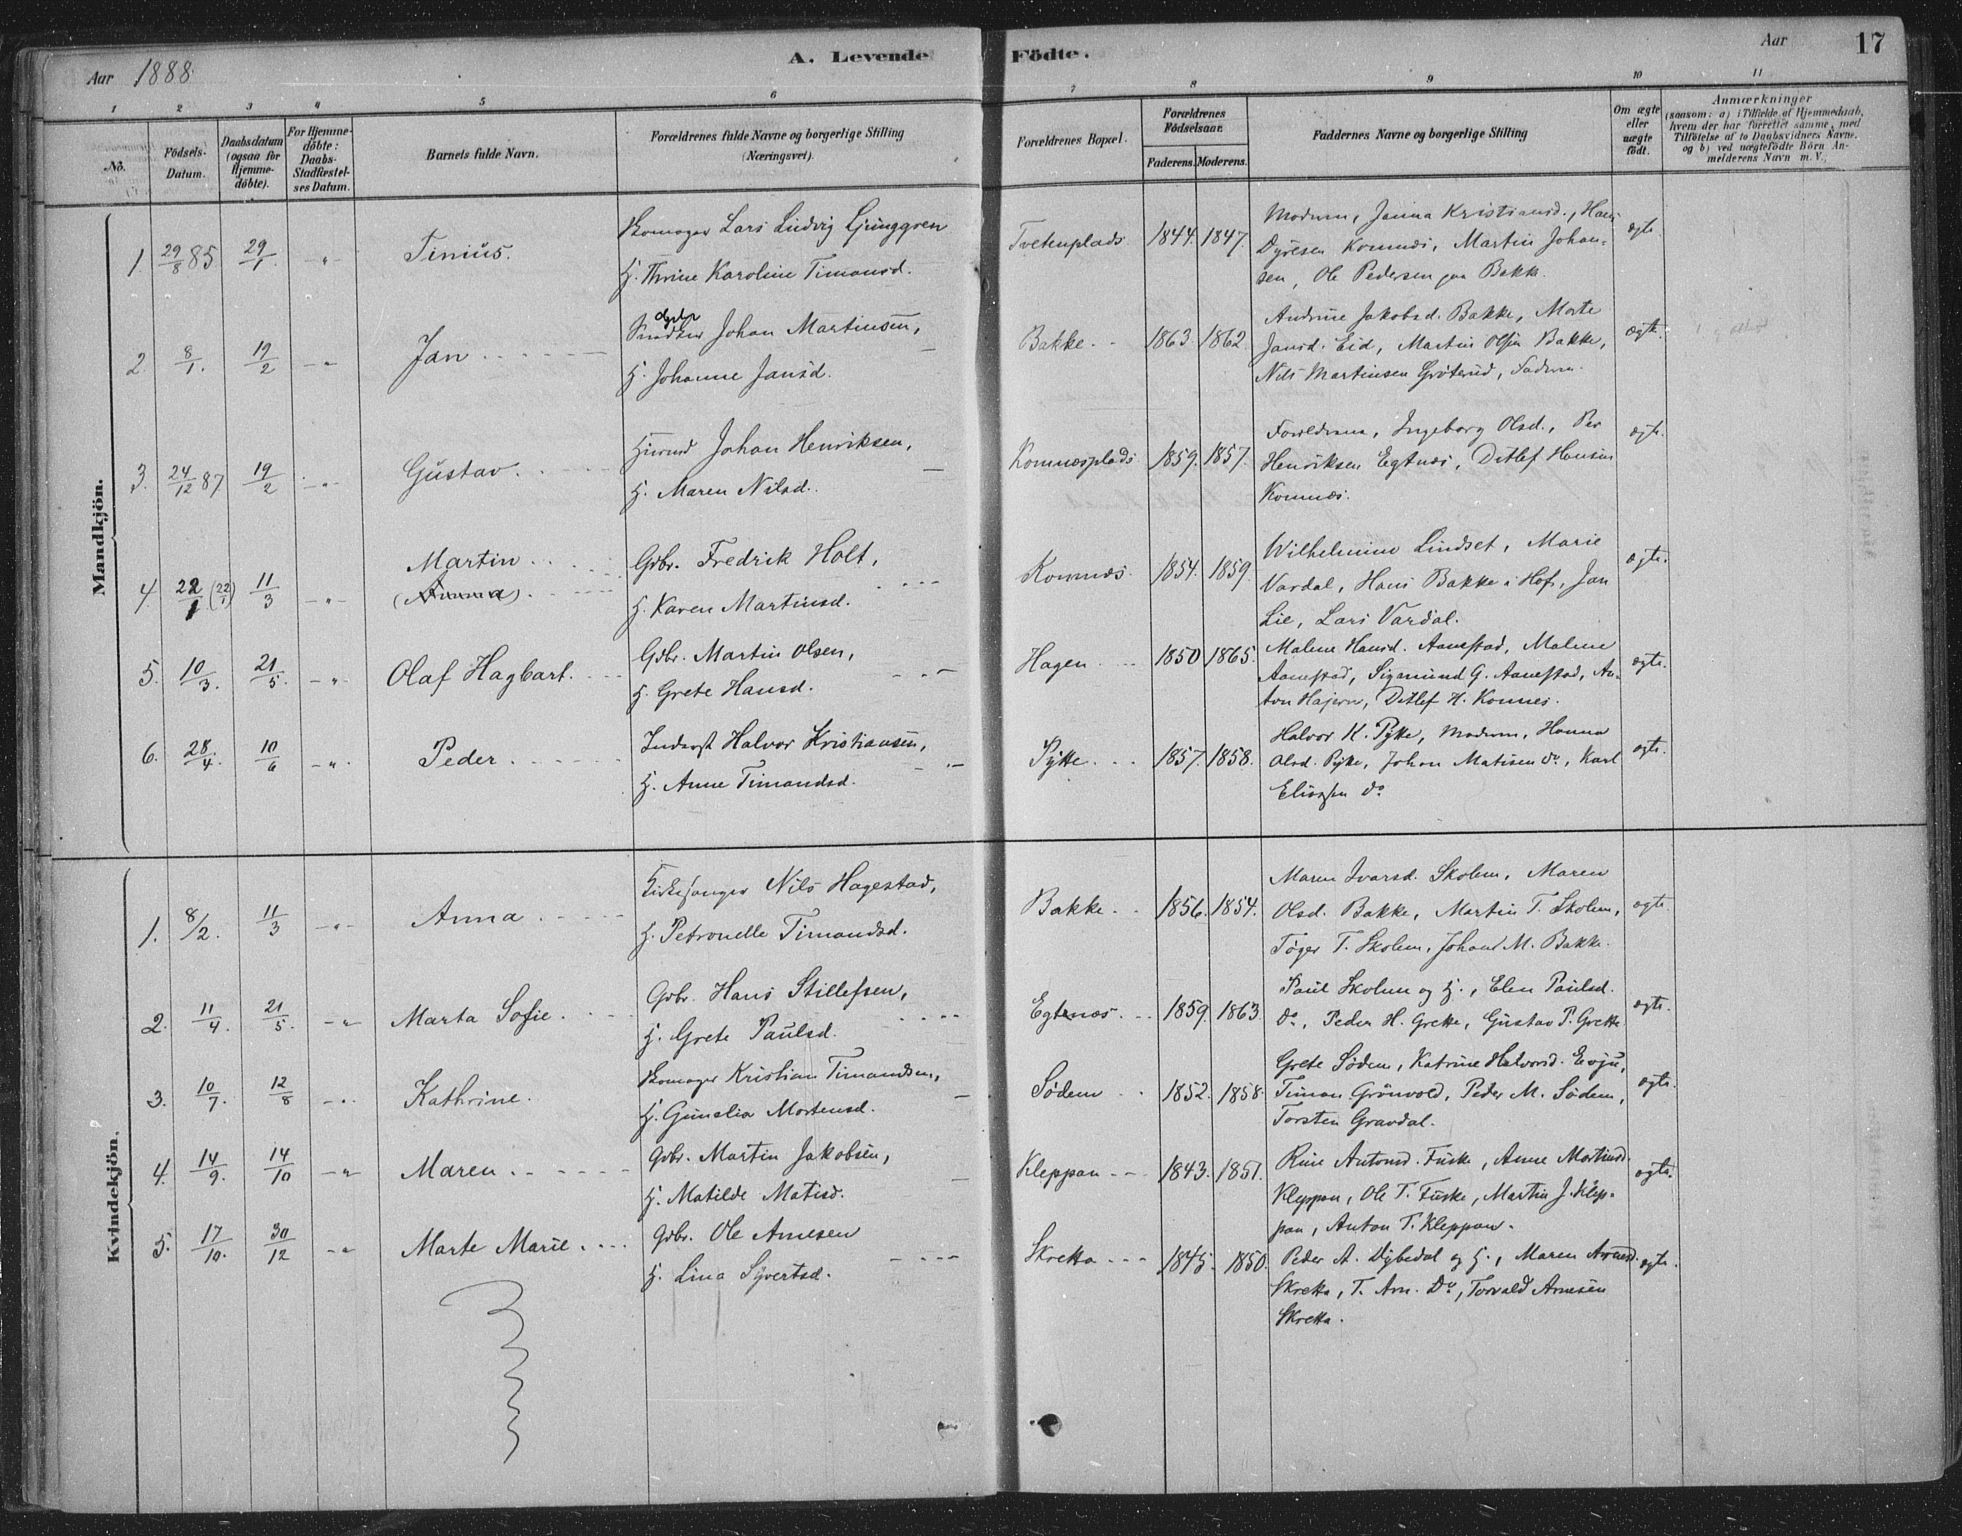 Aar 1888.
A. Levende Födte.
Aar 17
1 2 3 4 5 6 7 8 9 10 11
No.
Födsels-Datum.
Daabsdatum (ogsaa for Hjemme-döbte).
For Hjemme-döbte: Daabs-Stadfæstel-ses Datum.
Barnets fulde Navn.
Forældrenes fulde Navne og borgerlige Stilling (Næringsvei).
Forældrenes Bopæl.
Forældrenes Födselsaar.
Faderens. Moderens.
Faddernes Navne og borgerlige Stilling
Om ægte eller uægte födt.
Anmærkninger
(saasom: a) i Tilfælde af Hjemmedaab, hvem der har forrettet samme, med Tilföielse af to Daabsvidners Navne, og b) ved uægtefödte Börn An-melderens Navn m. V.,
Mandkjön.
1 29/8 85 29/1. -"- Tinius.
Skomager Lars Ludvig Ljunggren
H. Thrine Karoline Timansd.
Tvetenplads 1844. 1847.
Moderen, Janna Kristiansd., Hans
Dyresen Komnæs, Martin Johan-
sen, Ole Pedersen paa Bakke.
ægte.
2 8/1. 19/2 -"- Jan
Johan Martinsen,
H. Johanne Jansd.
Bakke. 1863. 1862.
Andrine Jakobsd. Bakke, Marte
Jansd. Eid, Martin Olsen Bakke,
Nils Martinsen Gröterud, Faderen.
ægte.
3. 24/12 87 19/2 -"- Gustav.
Johan Henriksen,
H. Maren Nilsd.
Komnæsplads 1859. 1857.
Forældrene, Ingeborg Olsd., Per
Henriksen Egtnæs, Ditlef Hansen
Komnæs.
ægte.
4. 22/1 (22/1) 11/3 -"- Martin
(Anna)
Gdbr. Fredrik Holt,
H. Karen Martinsd.
Komnæs. 1854. 1859.
Wilhelmine Lindset, Marie
Vardal, Hans Bakke i Hof, Jan
Lie, Lars Vardal.
ægte.
5. 10/3. 21/5. -"- Olaf Hagbart.
Gdbr. Martin Olsen,
H. Grete Hansd.
Hagen 1850 1865.
Malene Hansd. Aanestad, Malene
Aanestad, Sigmund G. Aanestad, An-
ton Hajern, Ditlef H. Komnes.
ægte.
6. 28/4. 10/6 -"- Peder
Inderst Halvor Kristiansen,
H. Anne Timandsd.
Pytte. 1857. 1858.
Halvor K. Pytte, Moderen, Hanna
Olsd. Pytte, Johan Matisen do, Karl
Eliassen do
ægte.
Kvindekjön.
1. 8/2. 11/3 -"- Anna
Kirkesanger Nils Hagestad,
H. Petronelle Timandsd.
Bakke. 1856. 1854.
Maren Ivarsd. Skolem, Maren
Olsd. Bakke, Martin T. Skolem,
Töger T. Skolem, Johan M. Bakke.
ægte.
2. 11/4. 21/5. -"- Marta Sofie.
Gdbr. Hans Stillefsen,
H. Grete Paulsd.
Egtnæs. 1859. 1863.
Paul Skolem og H., Elen Paulsd.
Do, Peder H. Grette, Gustav P. Grette
ægte.
3. 10/7. 12/8 -"- Kathrine.
Skomager Kristian Timandsen,
H. Gunelia Mortensd.
Södem 1852. 1858.
Grete Södem, Katrine Halvorsd. Evju,
Timan Grönvold, Peder M. Södem,
Torsten Gravdal.
ægte.
4. 14/9. 14/10 -"- Maren
Gdbr. Martin Jakobsen,
H. Matilde Matisd.
Kleppan 1843. 1851.
Rine Antonsd. Fuske, Anne Martinsd.
Kleppan, Ole T. Fuske, Martin J. Klep-
pan, Anton T. Kleppan.
ægte.
5. 17/10. 30/12 -"- Marte Marie.
Gdbr. Ole Arnesen
H. Lina Syvertsd.
Skretta 1845. 1850.
Peder A. Dybedal og H., Maren Arnesd.
Skretta, T. Arn. Do, Torvald Arnesen
Skretta.
ægte.